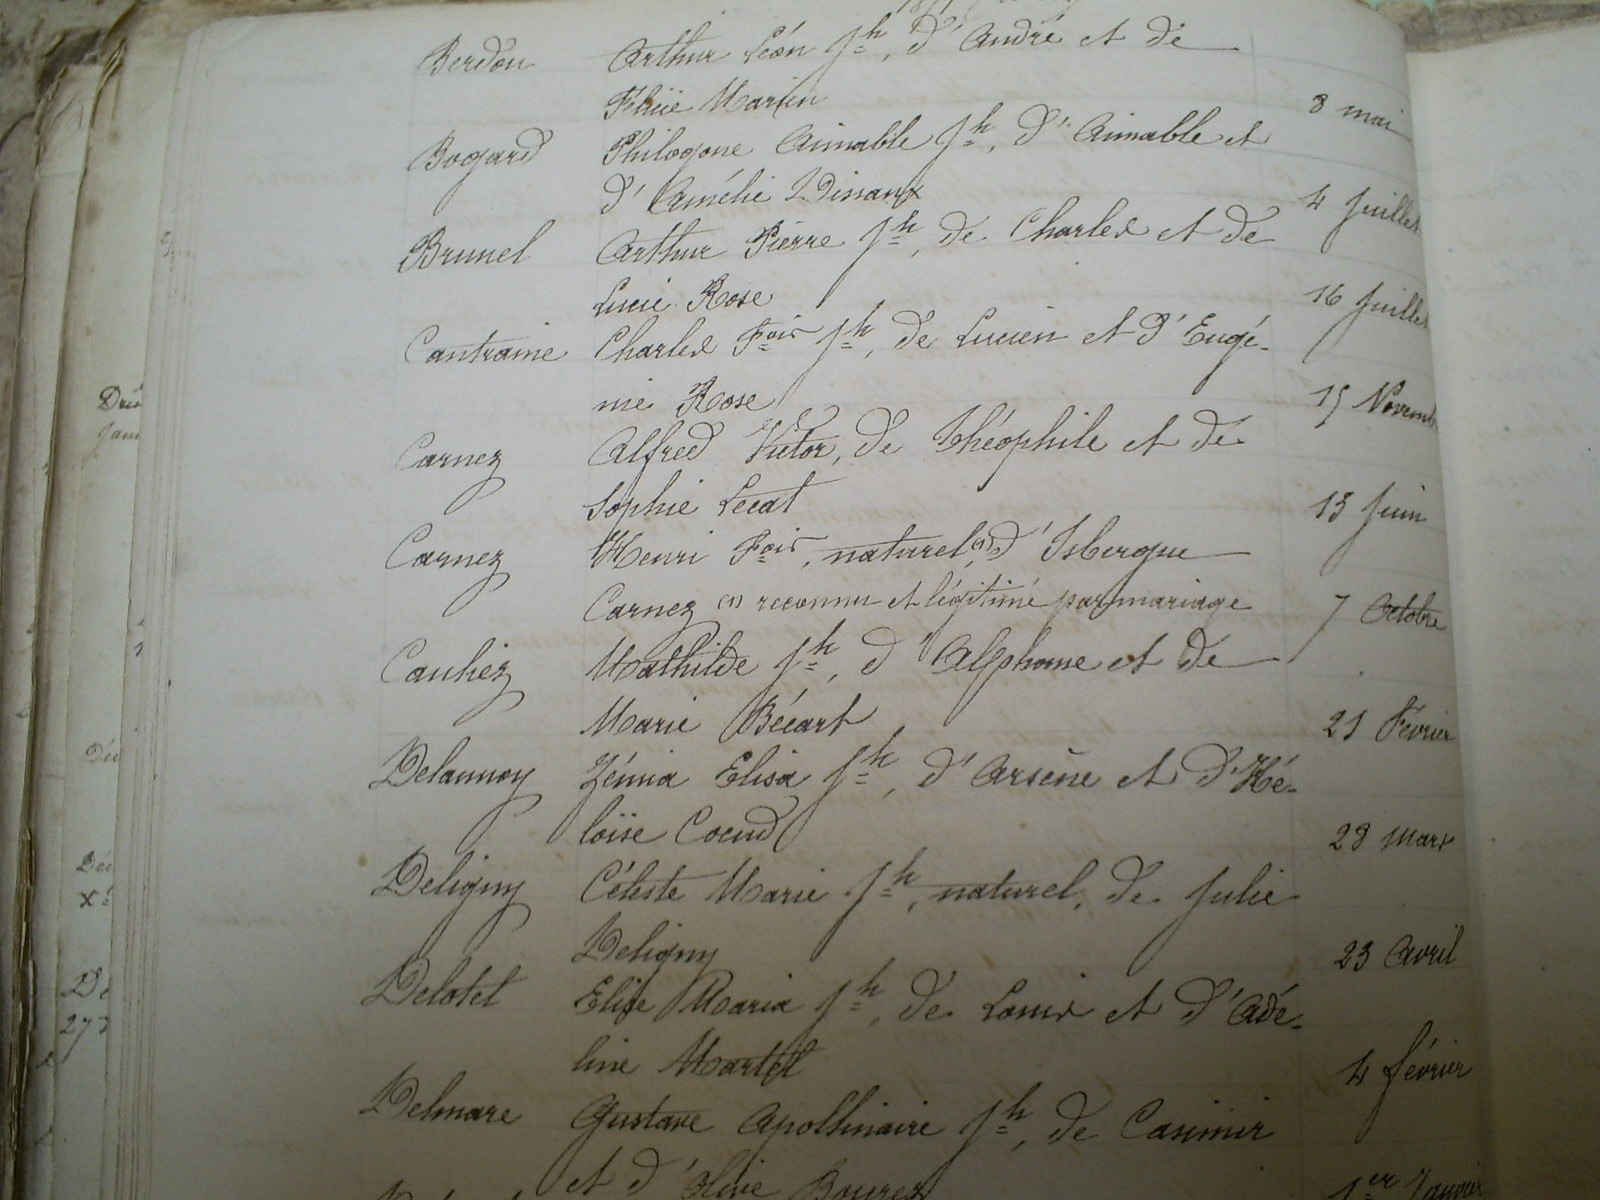 Berdou Arthur Léon Jh, d'André et de
Félicie Martin 8 mai
Bogard Philogone Aimable Jh, d'Aimable et
d'Amélie Dissaux 4 Juillet
Brunel Arthur Pierre Jh, de Charles et de
Lucie Rose 16 Juillet
Cantraine Charles Fois Jh, de Lucien et d'Eugé-
nie Rose 15 Novemb
Carnez Alfred Victor, de Théophile et de
Sophie Lecat 13 Juin
Carnez Henri Fois, naturel (1) d'Isbergue
Carnez (1) reconnu et légitimé par mariage 7 Octobre
Cauliez Mathilde Jh, d'Alphonse et de
Marie Bécart 21 Février
Delannoy Zénia Elisa Jh, d'Arsène et d'Hé-
loïse Coeud 28 mars
Deligny Céleste Marie Jh, naturel, de Julie
Deligny 23 Avril
Delotel Elise Maria Jh, de Louis et d'Adé-
line Martel 4 février
Delmare Gustave Apollinaire Jh, de Casimir
et d'Olive Bourez 1er Janvier